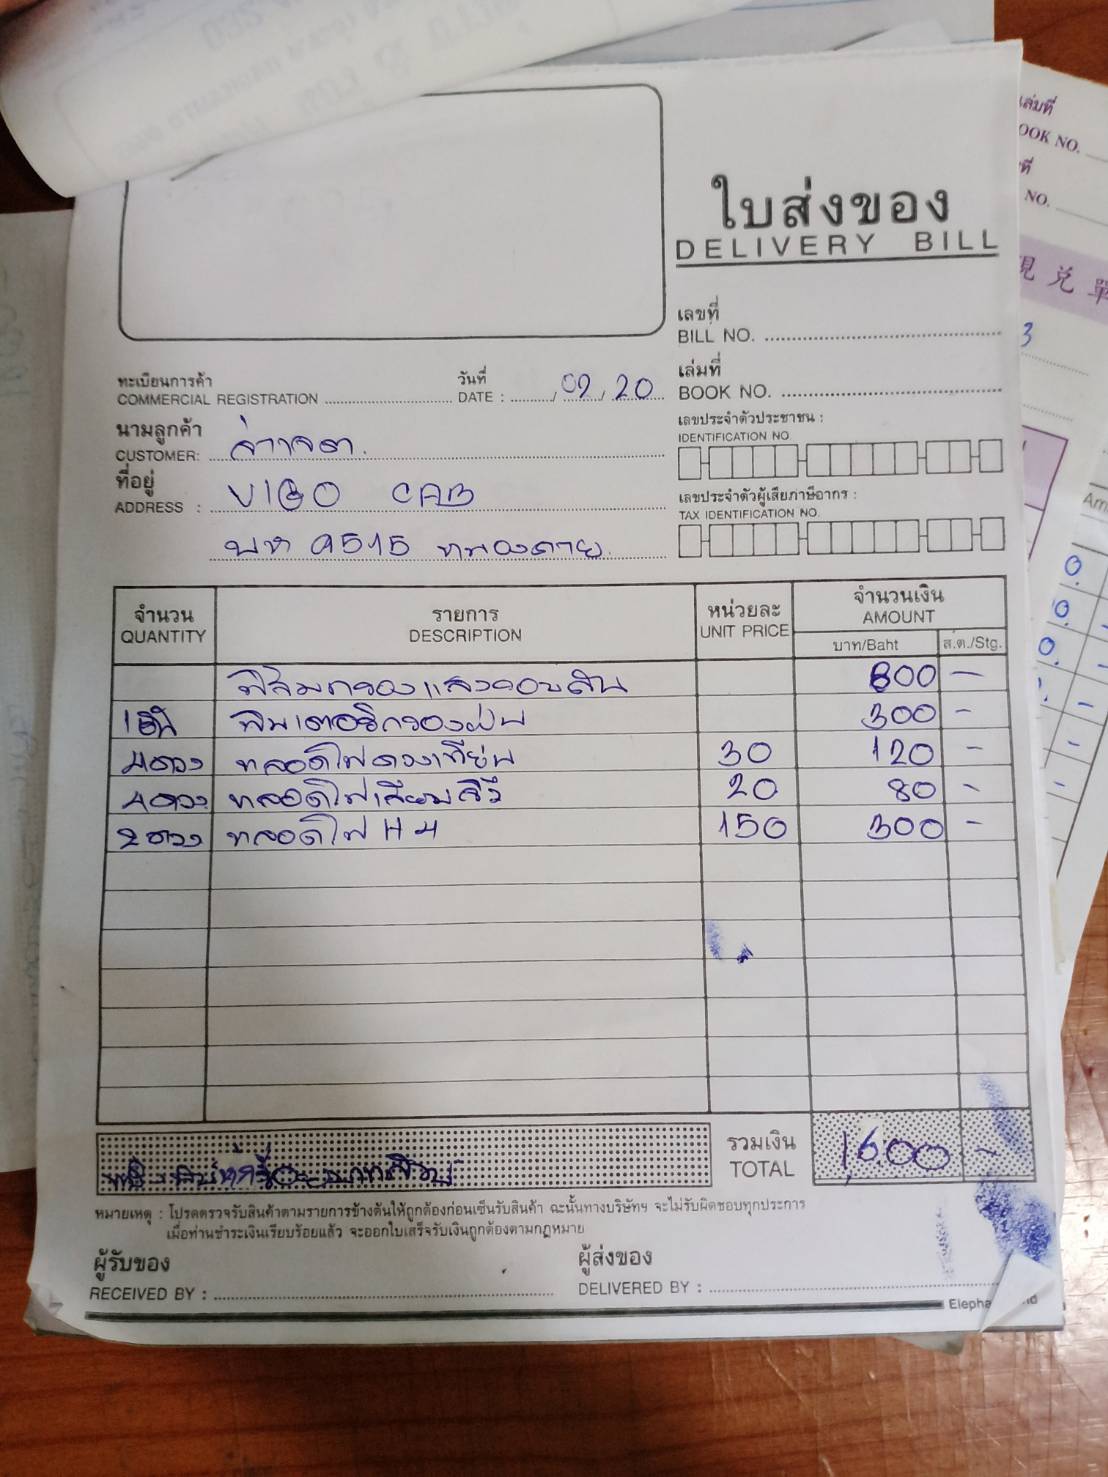 ใบส่งของ
DELIVERY BILL
เลขที่
BILL NO.
ทะเบียนการค้า
COMMERCIAL REGISTRATION
วันที่
DATE : , 02 , 20
เล่มที่
BOOK NO.
นามลูกค้า
CUSTOMER:
เลขประจำตัวประชาชน :
IDENTIFICATION NO
ที่อยู่
ADDRESS : VIGO CAB
เลขประจำตัวผู้เสียภาษีอากร :
TAX IDENTIFICATION NO.
บห 9515 หนองคาย
จำนวน รายการ หน่วยละ จำนวนเงิน
QUANTITY DESCRIPTION UNIT PRICE AMOUNT
บาท/Baht ส.ต./Stg.
ฟิล์มกรองแสงรอบคัน 800 -
1 ฟิวเตอร์กรองฝุ่น 300 -
4 ดวง หลอดไฟดวงเทียน 30 120 -
4 ดวง หลอดไฟเสียบ 20 80 -
2 ดวง หลอดไฟ H4 150 300 -
รวมเงิน
TOTAL 1,600 -
หมายเหตุ : โปรดตรวจรับสินค้าตามรายการข้างต้นให้ถูกต้องก่อนเซ็นรับสินค้า ฉะนั้นทางบริษัทฯ จะไม่รับผิดชอบทุกประการ
เมื่อท่านชำระเงินเรียบร้อยแล้ว จะออกใบเสร็จรับเงินถูกต้องตามกฎหมาย
ผู้รับของ ผู้ส่งของ
RECEIVED BY : DELIVERED BY :
เล่มที่
BOOK NO.
NO.
現兌單
3